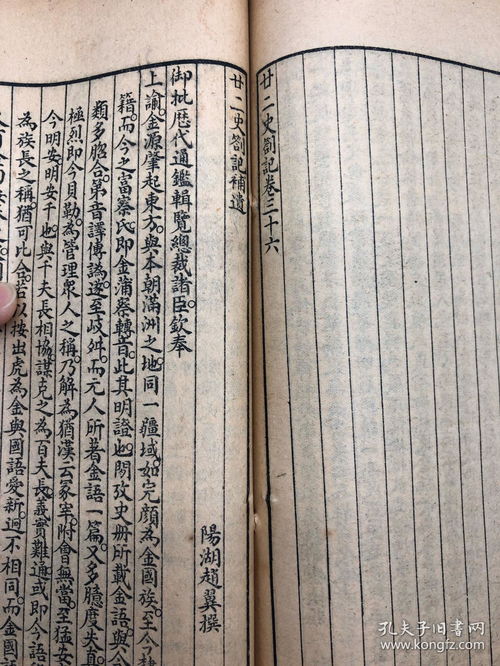 廿二史劄記卷三十六
廿二史劄記補遺
陽湖趙翼撰
御批歷代通鑑輯覽總裁諸臣欽奉
上諭金源肇起東方與本朝滿洲之地同一疆域如完顏為金國族至今隸
籍而今之富察氏即金蒲察轉音此其明證也閱攷史冊所載金語與今
類多脗合第音譯傳譌遂至歧舛而元人所著金語一篇又多臆度失真
極烈即今貝勒為管理衆人之稱乃解為猶漢云冢宰附會無當至猛安
今明安明安千也與千夫長相協謀克之為百夫長義實難通或即今語
為族長之稱猶可比合若以按出虎為金與國語愛新迥不相同而金國
孔夫子旧书网
www.kongfz.com